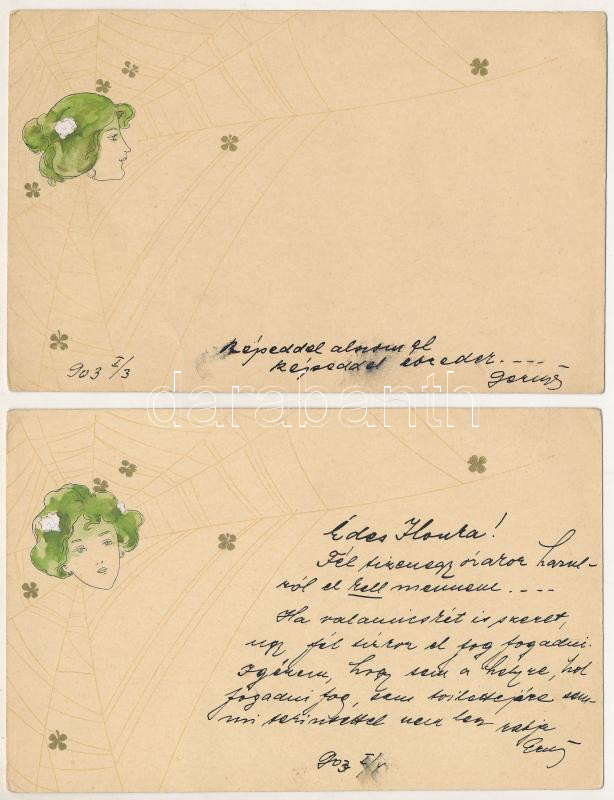 Képeddel alszom el
képeddel ébredek. ....
903 I/3
darabanth
Édes Ilonka!
Fél tizenegy órakor hazul-
ról el kell mennem ....
Ha valamicskét is szeret,
ugy fél tizkor el fog fogadni.
Igérem, hogy sem a helyre, hol
fogadni fog, sem toilettejére sem-
mi tekintettel nem lesz
Ernő
903